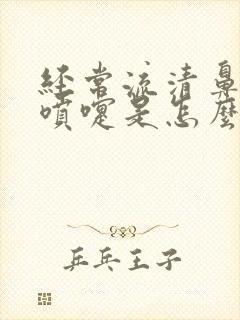 經常流清鼻
噴嚏是怎麼
乒乓王子